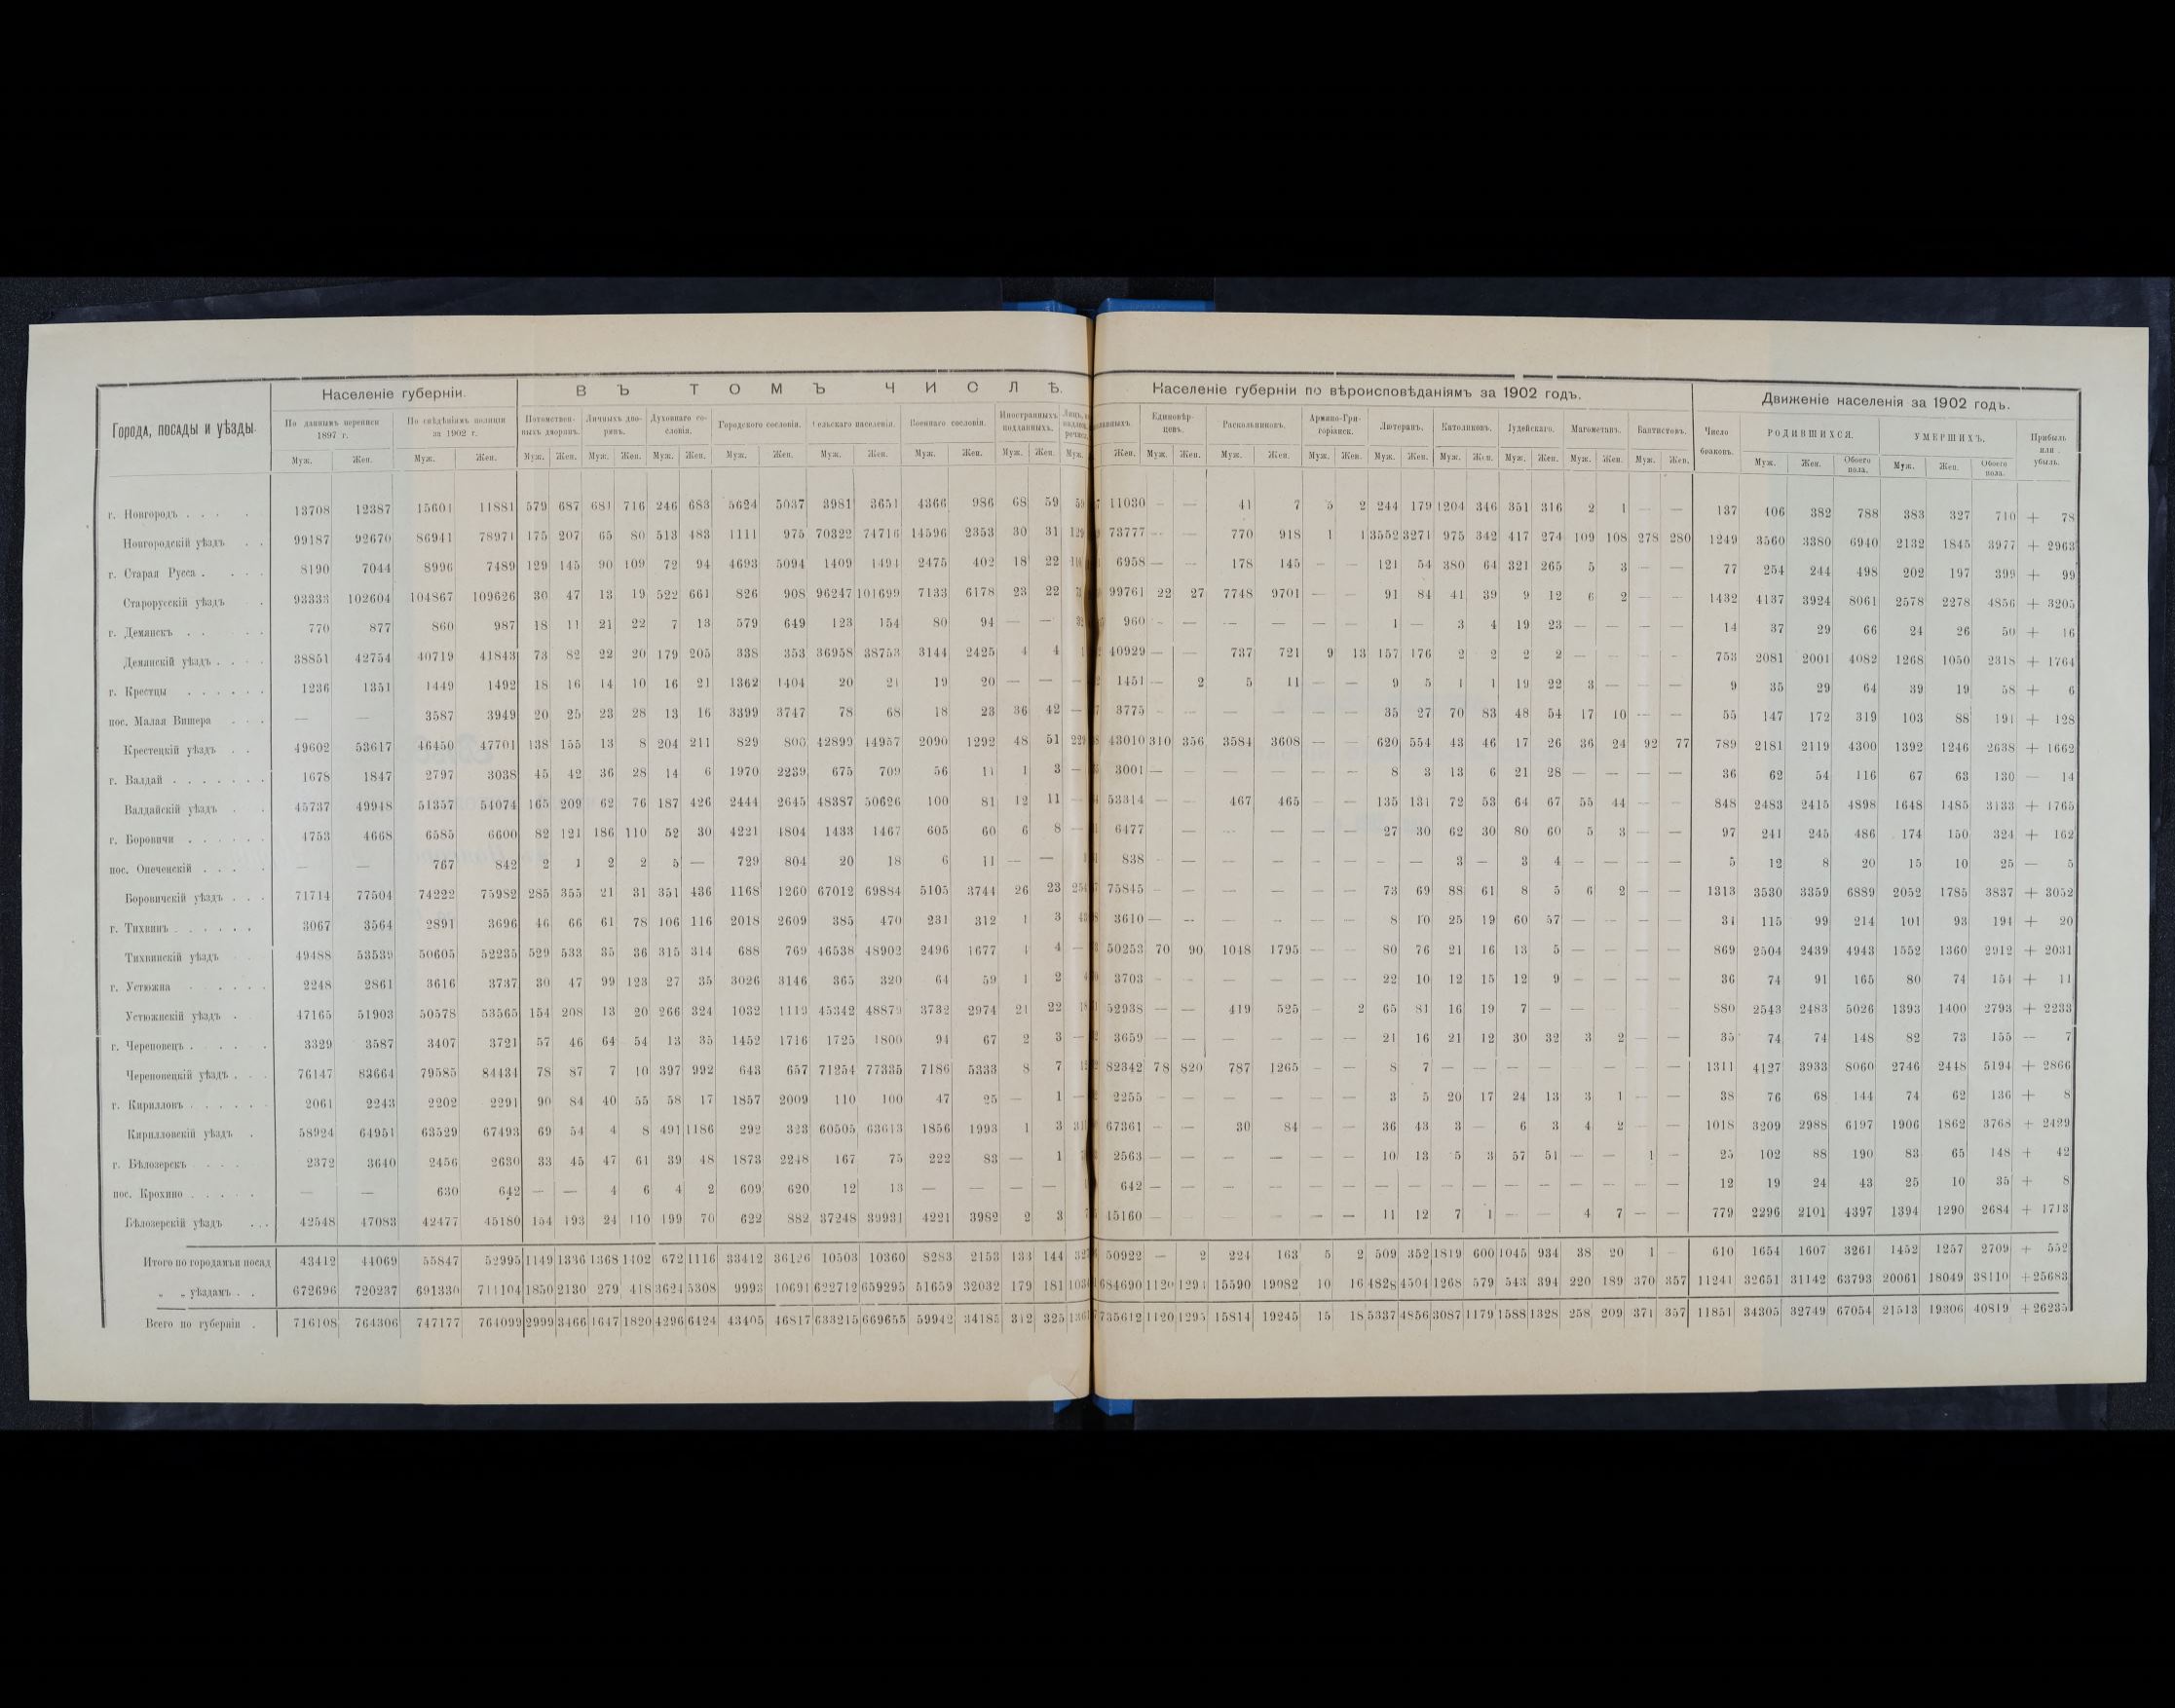 Населеніе губерніи. В Ъ Т О М Ъ Ч И С Л Ѣ. Населеніе губерніи по вѣроисповѣданіямъ за 1902 годъ. Движеніе населенія за 1902 годъ.
Города, посады и уѣзды. По даннымъ переписи 1897 г. По свѣдѣніямъ полиціи за 1902 г. Потомственныхъ дворянъ. Личныхъ дворянъ. Духовнаго сословія. Городского сословія. Сельскаго населенія. Военнаго сословія. Иностранныхъ подданныхъ. Единовѣрцевъ. Раскольниковъ. Армяно-Григоріанск. Лютеранъ. Католиковъ. Іудейскаго. Магометанъ. Баптистовъ. Число браковъ. РОДИВШИХСЯ. УМЕРШИХЪ. Прибыль или убыль.
Муж. Жен. Муж. Жен. Муж. Жен. Муж. Жен. Муж. Жен. Муж. Жен. Муж. Жен. Муж. Жен. Муж. Жен. Муж. Жен. Муж. Жен. Муж. Жен. Муж. Жен. Муж. Жен. Муж. Жен. Муж. Жен. Муж. Жен. Муж. Жен. Муж. Жен. Обоего пола. Муж. Жен. Обоего пола.
г. Новгородъ 13708 12387 15601 11881 579 687 681 716 246 683 5624 5037 3981 3651 4366 986 68 59 11030 — — 41 7 5 2 244 179 1204 346 351 316 2 1 — — 137 406 382 788 383 327 710 + 78
Новгородскій уѣздъ 99187 92670 86941 78971 175 207 65 80 513 483 1111 975 70322 74716 14596 2353 30 31 73777 — — 770 918 1 1 3552 3271 975 342 417 274 109 108 278 280 1249 3560 3380 6940 2132 1845 3977 + 2963
г. Старая Русса 8190 7044 8996 7489 129 145 90 109 72 94 4693 5094 1409 1494 2475 402 18 22 6958 — — 178 145 — — 121 54 380 64 321 265 5 3 — — 77 254 244 498 202 197 399 + 99
Старорусскій уѣздъ 93333 102604 104867 109626 30 47 13 19 522 661 826 908 96247 101699 7133 6178 23 22 99761 22 27 7748 9701 — — 91 84 41 39 9 12 6 2 — — 1432 4137 3924 8061 2578 2278 4856 + 3205
г. Демянскъ 770 877 860 987 18 11 21 22 7 13 579 649 123 154 80 94 — — 960 — — — — — — 1 — 3 4 19 23 — — — — 14 37 29 66 24 26 50 + 16
Демянскій уѣздъ 38851 42754 40719 41843 73 82 22 20 179 205 338 353 36958 38753 3144 2425 4 4 40929 — — 737 721 9 13 157 176 2 2 2 2 — — — — 753 2081 2001 4082 1268 1050 2318 + 1764
г. Крестцы 1236 1351 1449 1492 18 16 14 10 16 21 1362 1404 20 21 19 20 — — — 1451 — 2 5 11 — — 9 5 1 1 19 22 3 — — — 9 35 29 64 39 19 58 + 6
пос. Малая Вишера — — 3587 3949 20 25 23 28 13 16 3399 3747 78 68 18 23 36 42 — 3775 — — — — — — 35 27 70 83 48 54 17 10 — — 55 147 172 319 103 88 191 + 128
Крестецкій уѣздъ 49602 53617 46450 47701 138 155 13 8 204 211 829 2090 1292 48 51 43010 310 356 3584 3608 — — 620 554 43 46 17 26 36 24 92 77 789 2181 2119 4300 1392 1246 2638 + 1662
г. Валдай 1678 1847 2797 3038 45 42 36 28 14 6 1970 2239 675 709 56 11 1 3 — 3001 — — — — — — 8 3 13 6 21 28 — — — — 36 62 54 116 67 63 130 — 14
Валдайскій уѣздъ 45737 49948 51357 54074 165 209 62 76 187 426 2444 2645 48387 50626 100 81 12 11 — 53314 — — 467 465 — — 135 131 72 53 64 67 55 44 — — 848 2483 2415 4898 1648 1485 3133 + 1765
г. Боровичи 4753 4668 6585 6600 82 121 186 110 52 30 4221 4804 1433 1467 605 60 6 8 — 6477 — — — — — 27 30 62 30 80 60 5 3 — — 97 241 245 486 174 150 324 + 162
пос. Опеченскій — — 767 842 2 1 2 2 5 — 729 804 20 18 6 11 — — 838 — — — — — — — — 3 — 3 4 — — — — 5 12 8 20 15 10 25 — 5
Боровичскій уѣздъ 71714 77504 74222 75982 285 355 21 31 351 436 1168 1260 67012 69884 5105 3744 26 23 75845 — — — — — — 73 69 88 61 8 5 6 2 — — 1313 3530 3359 6889 2052 1785 3837 + 3052
г. Тихвинъ 3067 3564 2891 3696 46 66 61 78 106 116 2018 2609 385 470 231 312 1 3 3610 — — — — — — 8 10 25 19 60 57 — — — — 31 115 99 214 101 93 194 + 20
Тихвинскій уѣздъ 49488 53539 50605 52235 529 533 35 36 315 314 688 769 46538 48902 2496 1677 4 4 — 50253 70 90 1048 1795 — — 80 76 21 16 13 5 — — — — 869 2504 2439 4943 1552 1360 2912 + 2031
г. Устюжна 2248 2861 3616 3737 30 47 99 123 27 35 3026 3146 365 320 64 59 1 2 3703 — — — — — — 22 10 12 15 12 9 — — — — 36 74 91 165 80 74 154 + 11
Устюжскій уѣздъ 47165 51903 50578 53565 154 208 13 20 266 324 1032 1113 45342 48879 3732 2974 21 22 52938 — — 419 525 — 2 65 81 16 19 7 — — — — — 880 2543 2483 5026 1393 1400 2793 + 2233
г. Череповецъ 3329 3587 3407 3721 57 46 64 54 13 35 1452 1716 1725 1800 94 67 2 3 — 3659 — — — — — — 21 16 21 12 30 32 3 2 — — 35 74 74 148 82 73 155 — 7
Череповецкій уѣздъ 76147 83664 79585 84431 78 87 7 10 397 992 643 657 71254 77335 7186 5333 8 7 82342 78 820 787 1265 — — 8 7 — — — — — — — — 1311 4127 3933 8060 2746 2448 5194 + 2866
г. Кирилловъ 2061 2243 2202 2291 90 84 40 55 58 17 1857 2009 110 100 47 25 — 1 — 2255 — — — — — — 3 5 20 17 24 13 3 1 — — 38 76 68 144 74 62 136 + 8
Кирилловскій уѣздъ 58924 64951 63529 67493 69 54 4 8 491 1186 292 323 60505 63613 1856 1993 1 3 67361 — — 30 84 — — 36 43 3 — 6 3 4 2 — — 1018 3209 2988 6197 1906 1862 3768 + 2429
г. Бѣлозерскъ 2372 3640 2456 2630 33 45 47 61 39 48 1873 2248 167 75 222 83 — 1 2563 — — — — — — 10 13 5 3 57 51 — — 1 — 25 102 88 190 83 65 148 + 42
пос. Крохино — — 630 642 — — 4 6 4 2 609 620 12 13 — — — — 642 — — — — — — — — — — — — — — — — 12 19 24 43 25 10 35 + 8
Бѣлозерскій уѣздъ 42548 47083 42477 45180 154 193 24 110 199 70 622 882 37248 39931 4221 3982 2 3 45160 — — — — — — 11 12 7 1 — — 4 7 — — 779 2296 2101 4397 1394 1290 2684 + 1713
Итого по городамъ и посад 43412 44069 55847 52995 1149 1336 1368 1402 672 1116 33412 36126 10503 10360 8283 2153 133 144 50922 — 2 224 163 5 2 509 352 1819 600 1045 934 38 20 1 — 610 1654 1607 3261 1452 1257 2709 + 552
„ „ уѣздамъ 672696 720237 691330 711104 1850 2130 279 418 3624 5308 9993 10691 622712 659295 51659 32032 179 181 684690 1120 1293 15590 19082 10 16 4828 4504 1268 579 543 394 220 189 370 357 11241 32651 31142 63793 20061 18049 38110 + 25683
Всего по губерніи 716108 764306 747177 764099 2999 3466 1647 1820 4296 6424 43405 46817 633215 669655 59942 34185 312 325 735612 1120 1295 15814 19245 15 18 5337 4856 3087 1179 1588 1328 258 209 371 357 11851 34305 32749 67054 21513 19306 40819 + 26235